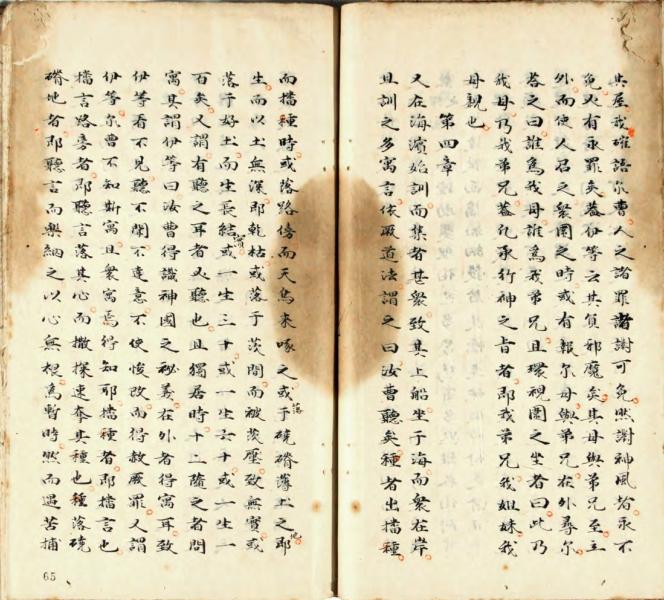 其屋我確語尔曹人之諸罪諸謝可免照謝神風者永不
免乂有永罪矣蓋伊等云其負邪魔矣其母與弟兄至立
外而使人召之衆圍之時或有報尔母與弟兄在外尋尔
答之曰誰為我母誰為我弟兄且環視圍之坐者曰此乃
我母乃我弟兄蓋凢承行神之㫖者即我弟兄我姐妹我
母親也
第四章
又在海濱始訓而集者甚衆致其上船坐于海而衆在岸
且訓之多寓言依厥道法謂之曰汝曹聽矣種者出播種
而播種時或落路傍而天鳥来啄之或落于磽磱薄土之地即
生而以土無深即乾枯或落于茨間而被茨壓致無實或
落于好土而生長結實或一生三十或一生六十或一生一
百矣又謂有聽之耳者乂聽也且獨居時十二隨之者問
寓其謂伊等曰汝曹得識神國之秘義在外者得寓耳致
伊等看不見聽不聞不達意不使悛改而得赦厥罪又謂
伊等尔曹不知斯寓且衆寓焉得知耶播種者即播言也
播言路旁者即聽言落其心而撒探速奪其種也種落磽
磱地者即聽言而樂納之以心無根為暫時然而遇苦捕
65